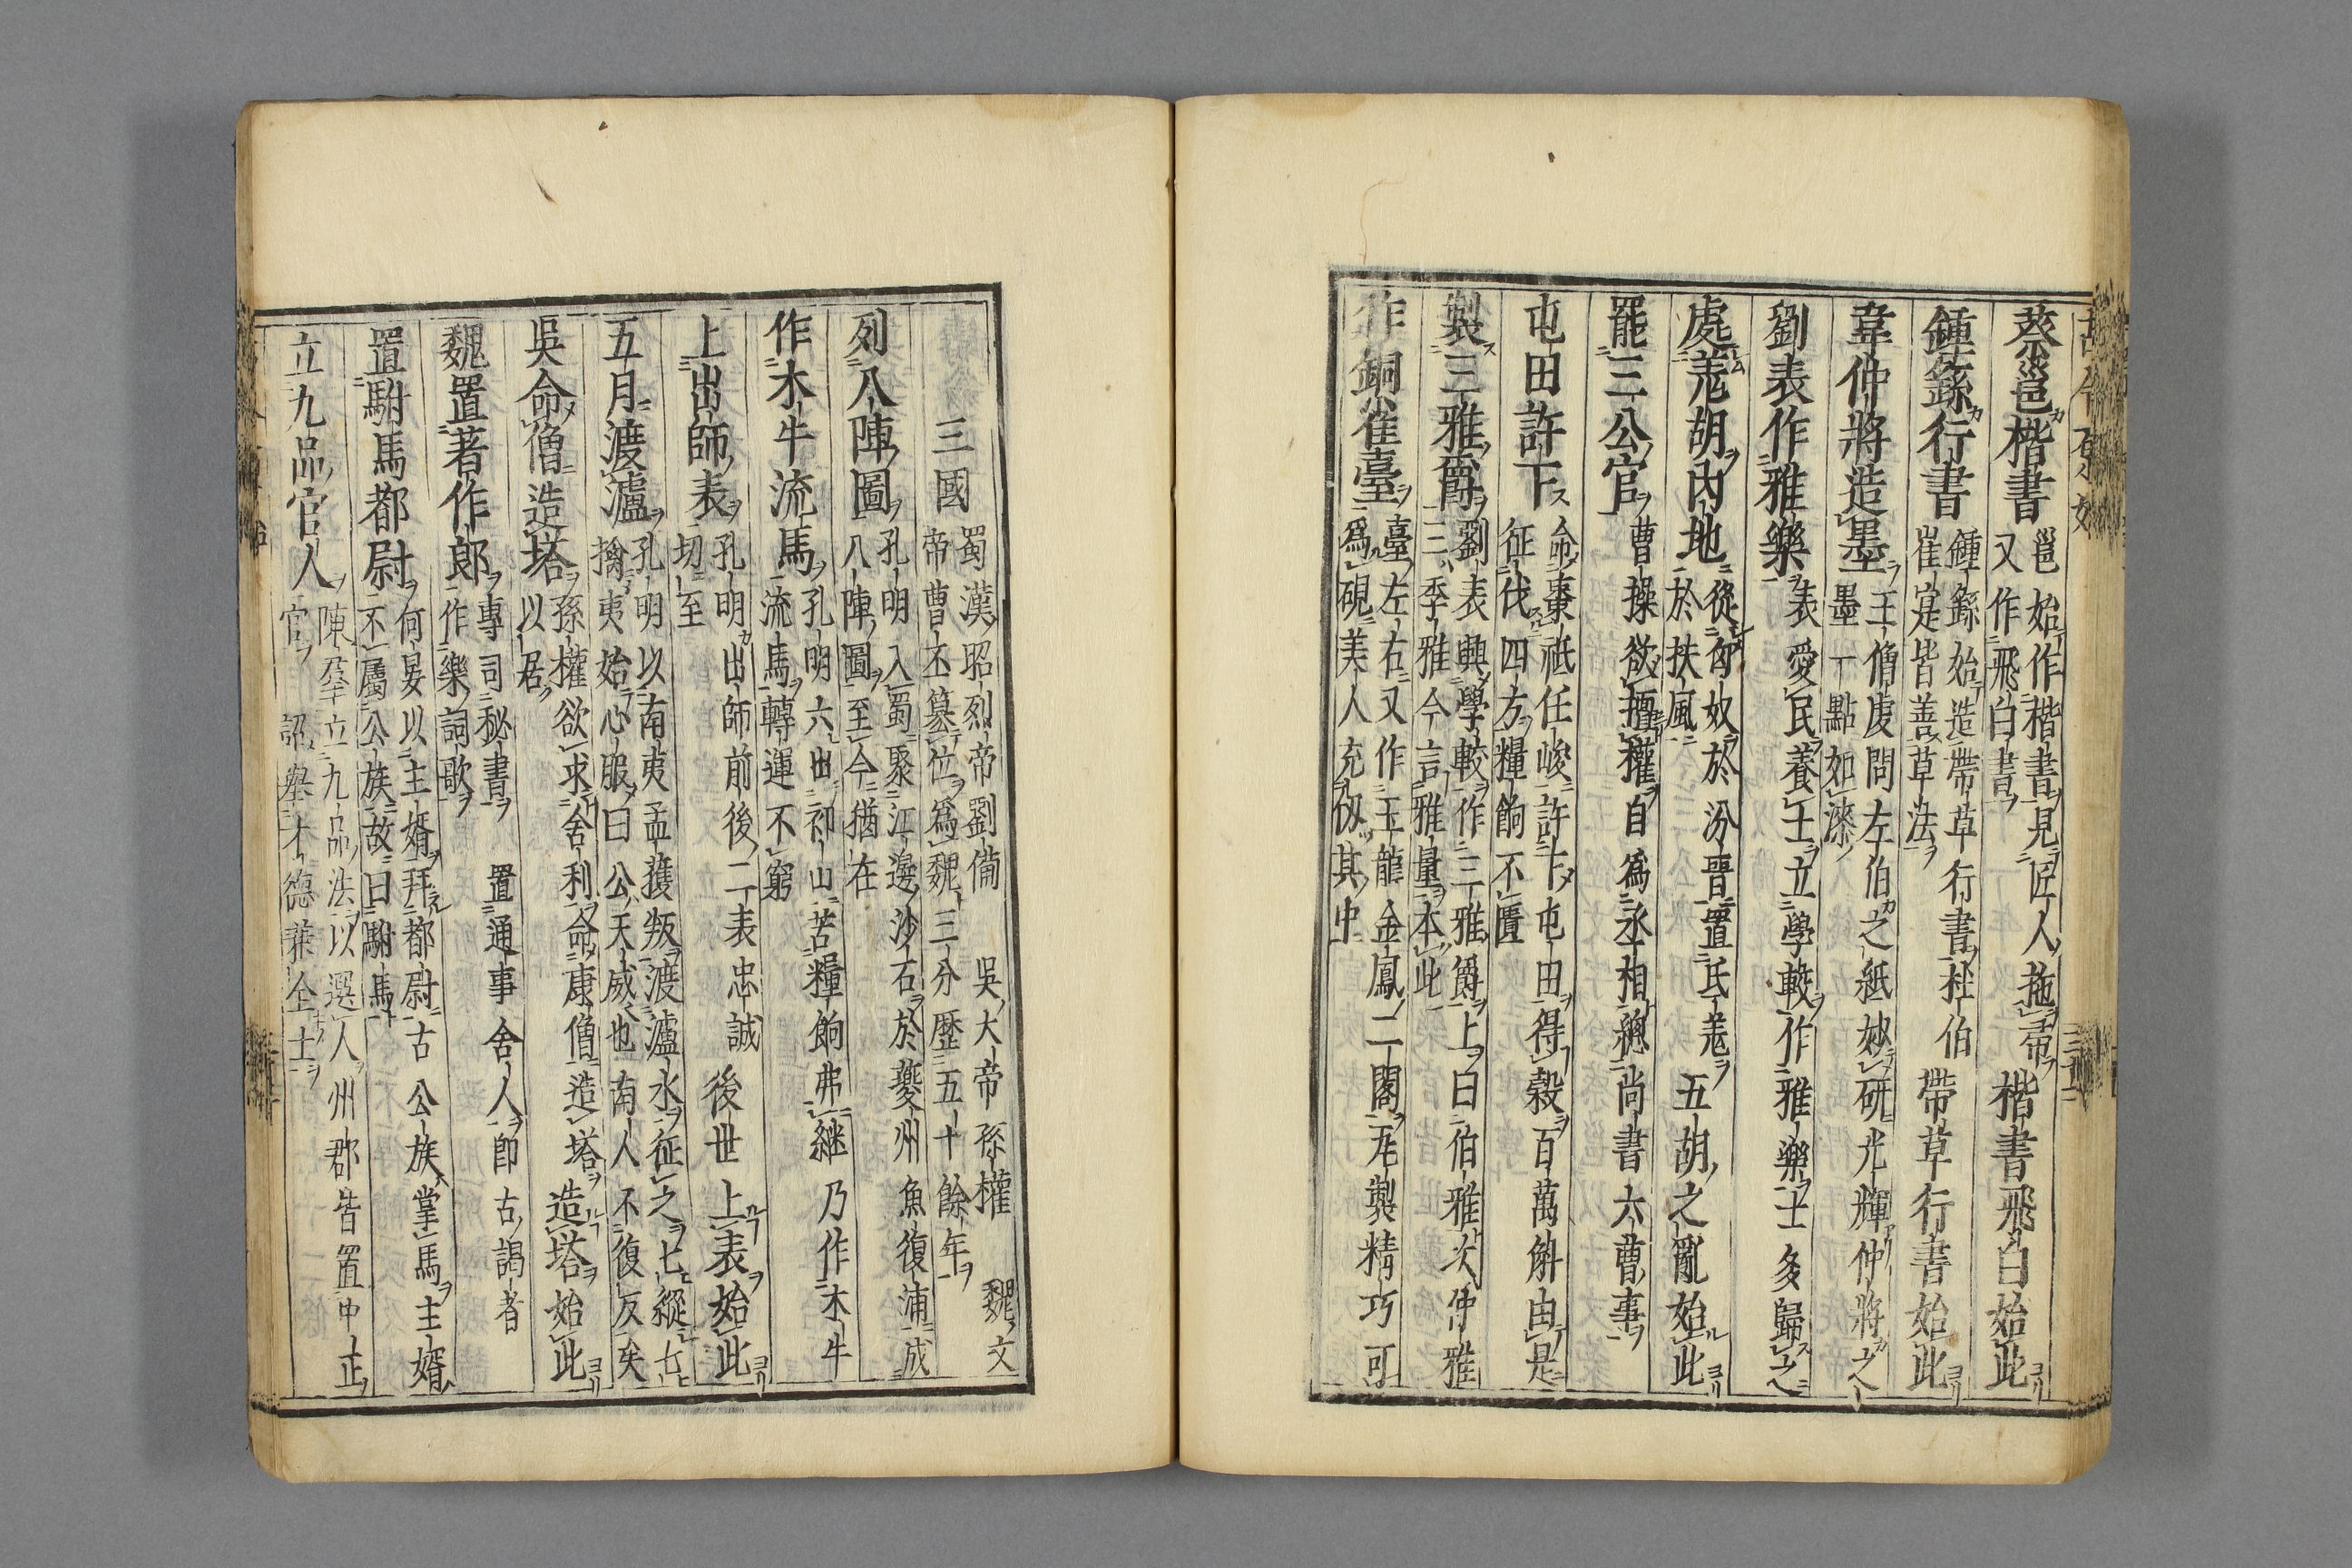 蔡邕楷書
邕始作楷書見匠人拖帚楷書飛白始此
又作飛白書
鍾繇行書
鍾繇始造帶草行書杜伯帶草行書始此
崔寔皆善草法
韋仲將造墨
王僧虔問左伯之紙妙研光輝仲將之
墨一點如漆
劉表作雅樂
表愛民養士立學較作雅樂士多歸之
處羌胡內地
從匈奴於汾晉置氐羌五胡之亂始此
於扶風
罷三公官
曹操欲擅權自為丞相總尚書六曹事
屯田許下
命棗祗任峻許下屯田得穀百萬斛由是
征伐四方糧餉不匱
製三雅爵
劉表興學較作三雅爵上曰伯雅次仲雅
三季雅今言雅量本此
作銅雀臺
臺左右又作玉龍金鳳二閣瓦製精巧可
為硯美人充仭其中
三國
蜀漢昭烈帝劉備 吳大帝孫權 魏文
帝曹丕篡位為魏三分歷五十餘年
列八陣圖
孔明入蜀聚江邊沙石於夔州魚復浦成
八陣圖至今猶在
作木牛流馬
孔明六出祁山苦糧餉弗繼乃作木牛
流馬轉運不窮
上出師表
孔明出師前後二表忠誠後世上表始此
切至
五月渡瀘
孔明以南夷孟獲叛渡瀘水征之七縱七
擒夷始心服曰公天威也南人不復反矣
吳命僧造塔
孫權欲求舍利命康僧造塔造塔始此
以居
魏置著作郎
專司秘書 置通事舍人即古謁者
作樂詞歌
置駙馬都尉
何晏以主婿拜都尉古公族掌馬主婿
不屬公族故曰駙馬
立九品官人
陳羣立九品法以選人州郡皆置中正
官詔舉才德兼全士